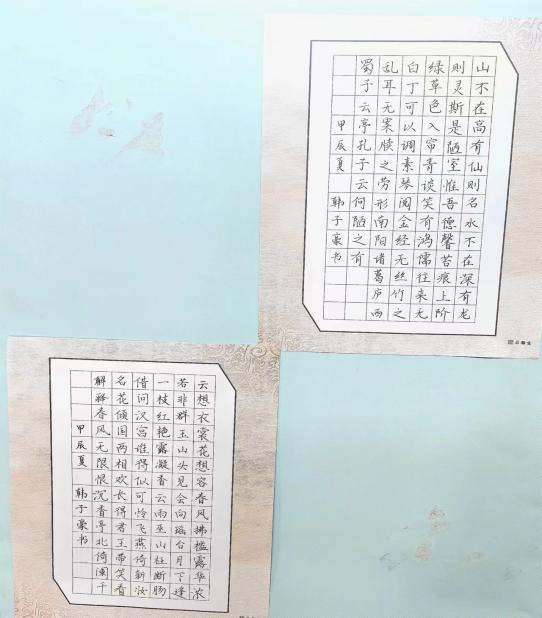 山不在高有仙则名水不在深有龙
则灵斯是陋室惟吾德馨苔痕上阶
绿草色入帘青谈笑有鸿儒往来无
白丁可以调素琴阅金经无丝竹之
乱耳无案牍之劳形南阳诸葛庐西
蜀子云亭孔子云何陋之有
甲辰夏 韩子豪书
云想衣裳花想容春风拂槛露华浓
若非群玉山头见会向瑶台月下逢
一枝红艳露凝香云雨巫山枉断肠
借问汉宫谁得似可怜飞燕倚新妆
名花倾国两相欢长得君王带笑看
解释春风无限恨沉香亭北倚阑干
甲辰夏 韩子豪书